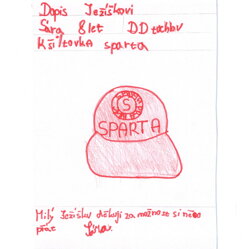 Dopis Ježíškovi
Sára 8 let DD tachov
Kšiltovka sparta
S
SPARTA
Milý Ježíšku děkuji za možnost si něco
přát Sára